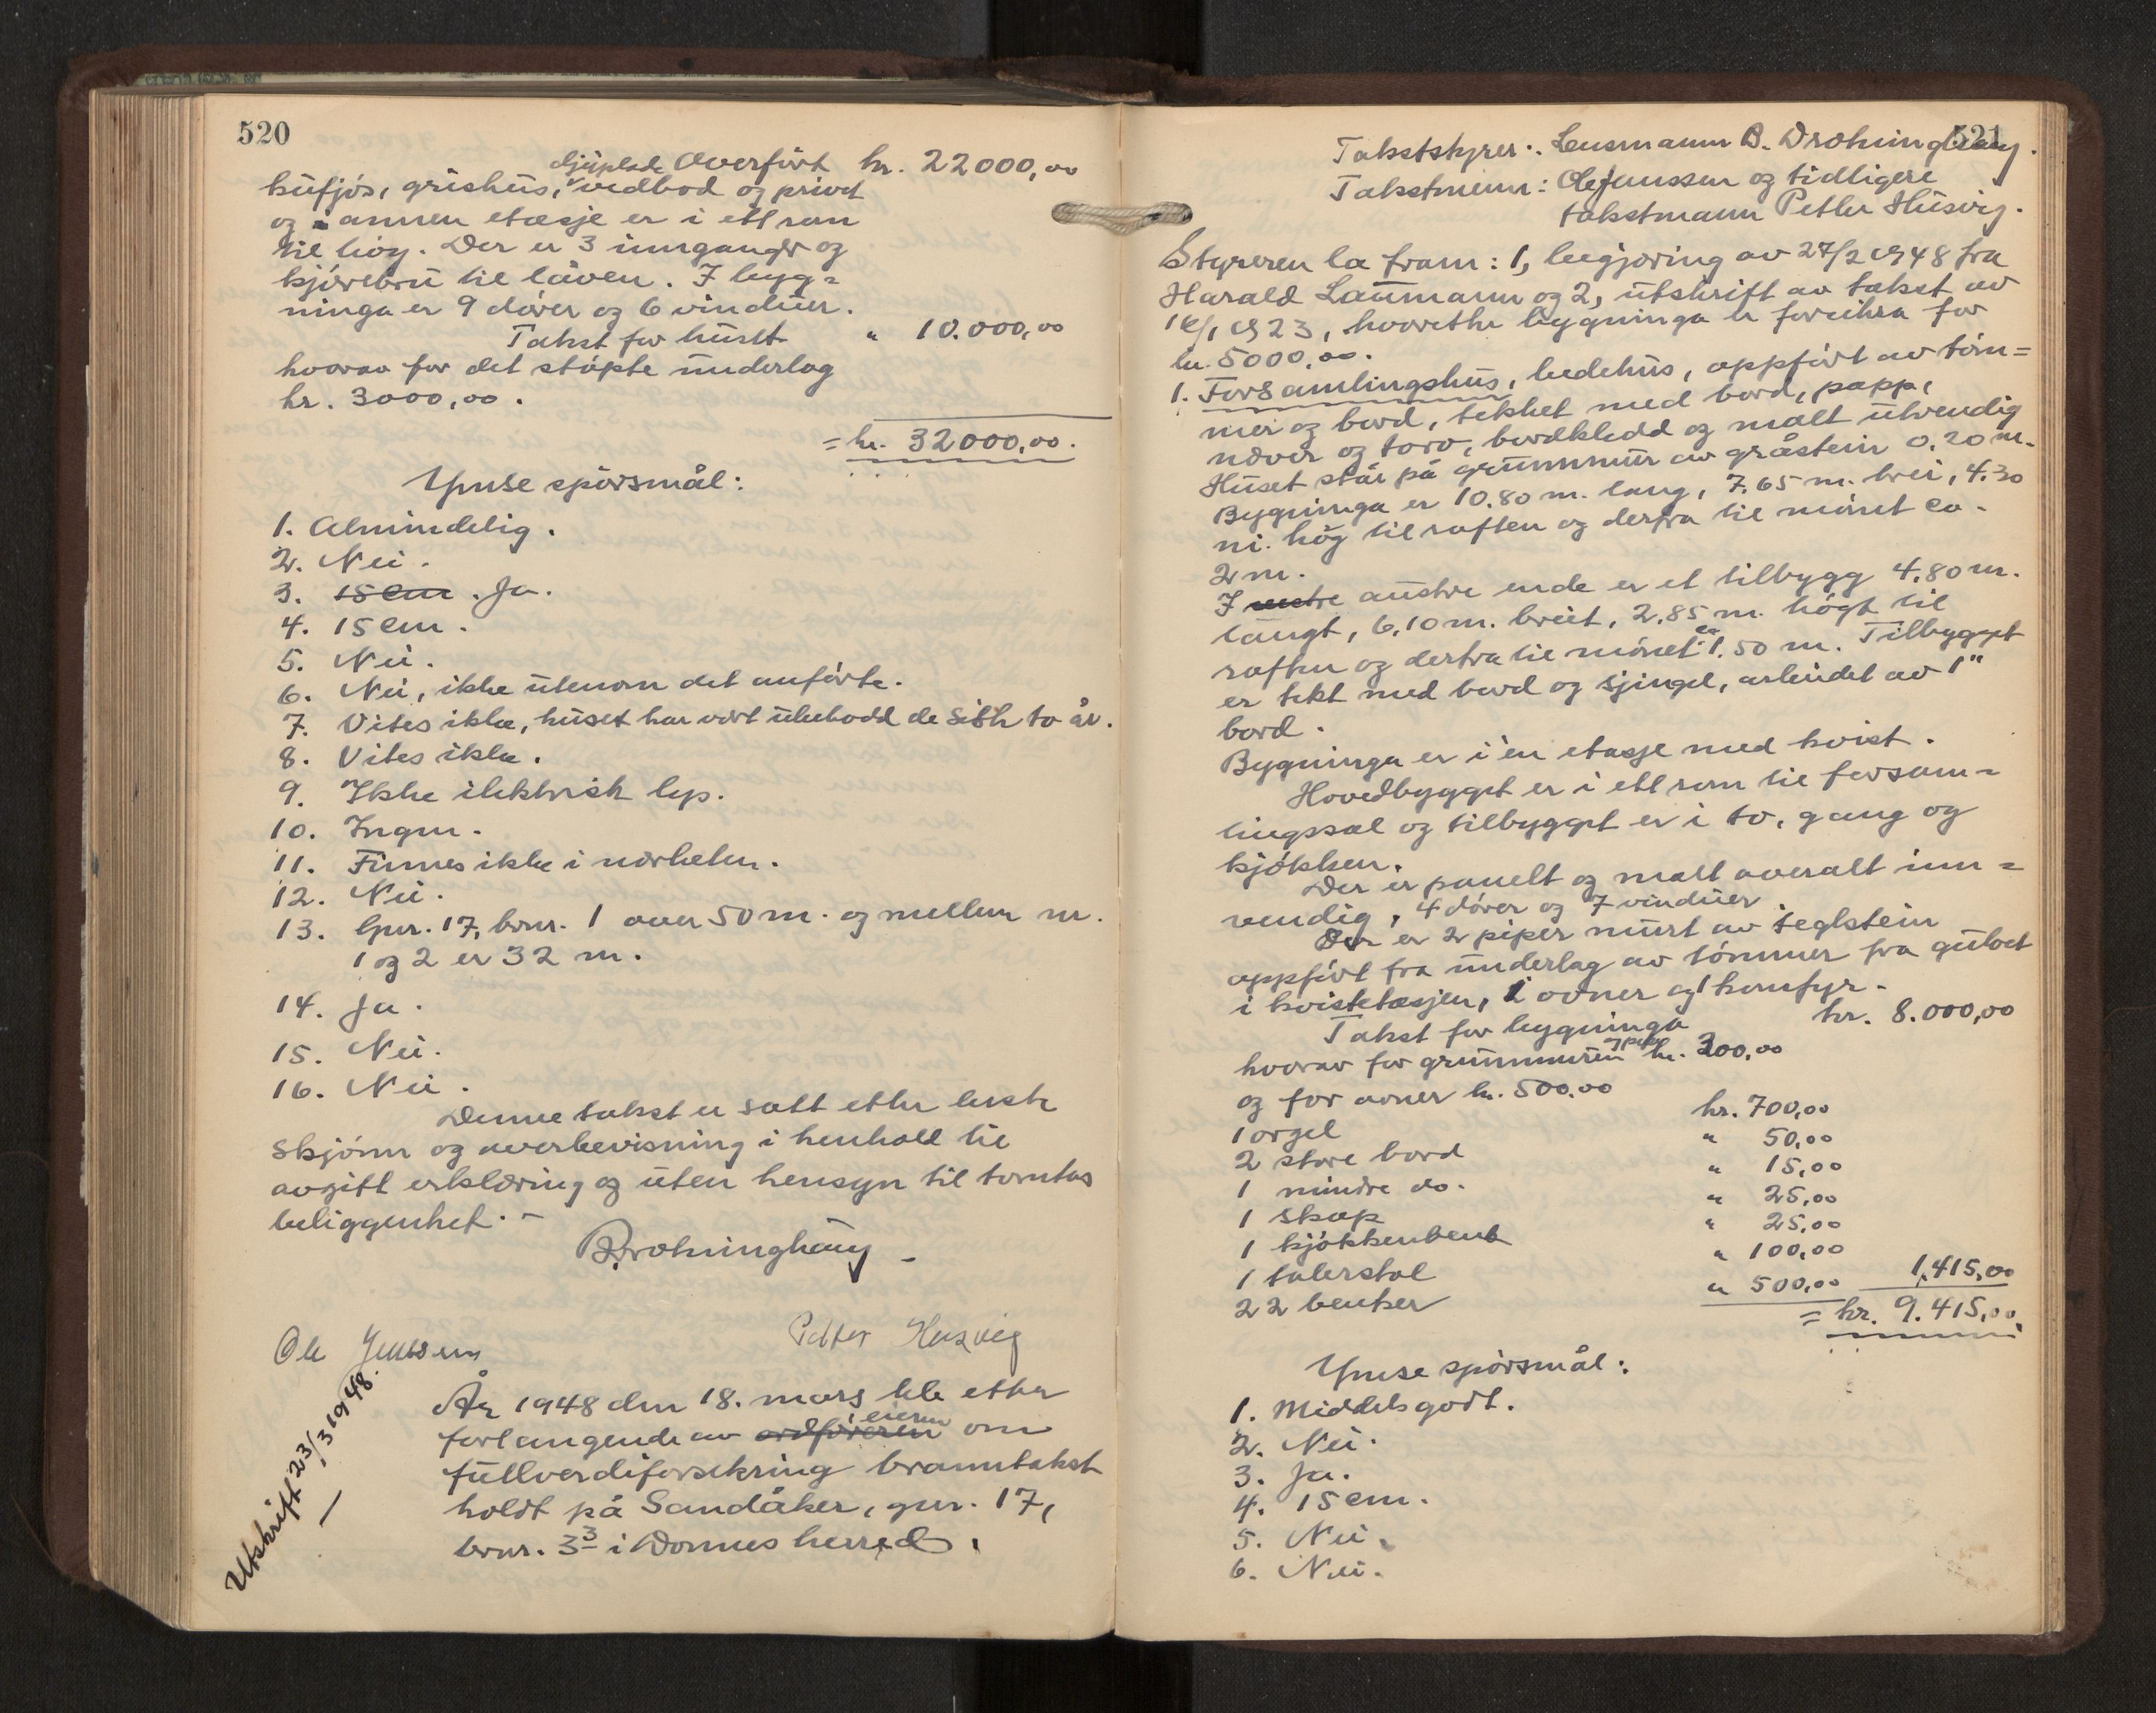 520
Overført kr. 22000,00
kufjøs, grishus, vedbod og privet
og i annen etasje er i ett rom
til høy. Der er 3 innganger og
kjørebru til låven. I byg=
ninga er 9 dører og 6 vinduer.
Takst for huset " 10.000,00
hvorav for det støpte underlag
kr. 3000,00.
= kr. 32000,00.
Ymse spørsmål:
1. Almindelig.
2. Nei.
3. 15 cm. Ja.
4. 15 cm.
5. Nei.
6. Nei, ikke utenom det anførte.
7. Vites ikke, huset har vært ubebodd de siste to år.
8. Vites ikke.
9. Ikke elektrisk lys.
10. Ingen.
11. Finnes ikke i nærheten.
12. Nei.
13. Gnr. 17, bnr. 1 over 50 m. og mellem nr.
1 og 2 er 32 m.
14. Ja.
15. Nei.
16. Nei.
Denne takst er satt etter beste
skjønn og overbevisning i henhold til
avgitt erklæring og uten hensyn til tomtas
beliggenhet. –
B. Dronninghaug
Ole Jenssen
Petter Husvig
Utskrift 23/3 1948.
År 1948 den 18. mars ble etter
forlangende av ordføreren eieren om
fullverdiforsikring branntakst
holdt på Sandåker, gnr. 17,
bnr. 3 3 i Dønnes herred.
521
Takststyrer: Lensmann B. Dronninghaug.
Takstmenn: Ole Jenssen og tidligere
takstmann Petter Husvig.
Styreren la fram: 1, begjæring av 27/2 1948 fra
Harald Laumann og 2, utskrift av takst av
1923, hvoretter bygninga er forsikra for
kr. 5000,00.
1. Forsamlingshus, bedehus, oppført av tøm=
mer og bord, tekket med bord, papp,
never og torv, bordkledd og malt utvendig
Huset står på grunnmur av gråstein 0,20 m.
Bygninga er 10.80 m. lang, 7,65 m. brei, 4.30
m. høg til raften og derfra til mønet ca.
2 m.
I austre ende er et tilbygg 4.80 m.
langt, 6,10 m. breit, 2.85 m. høgt til
raften og derfra til mønet ca 1.50 m. Tilbygget
er tekt med bord og sjingel, arbeidet av 1"
bord.
Bygninga er i én etasje med kvist.
Hovedbygget er i ett rom til forsam=
lingssal og tilbygget er i to, gang og
kjøkken.
Der er panelt og malt overalt inn=
vendig, 4 dører og 7 vinduer
Der er 2 piper murt av teglstein
oppført fra underlag av tømmer fra gulvet
i kvistetasjen, 2 ovner og 1 komfyr.
Takst for bygninga kr. 8.000,00
hvorav for grunnmuren og piper kr. 300,00
og for ovner kr. 500,00
1 orgel kr. 700,00
2 store bord " 50,00
1 mindre do. " 15,00
1 skap " 25,00
1 kjøkkenbenk " 25,00
1 talerstol " 100,00
22 benker " 500,00 1.415,00
= kr. 9.415,00.
Ymse spørsmål:
1. Middelsgodt.
2. Nei.
3. Ja.
4. 15 cm.
5. Nei.
6. Nei.